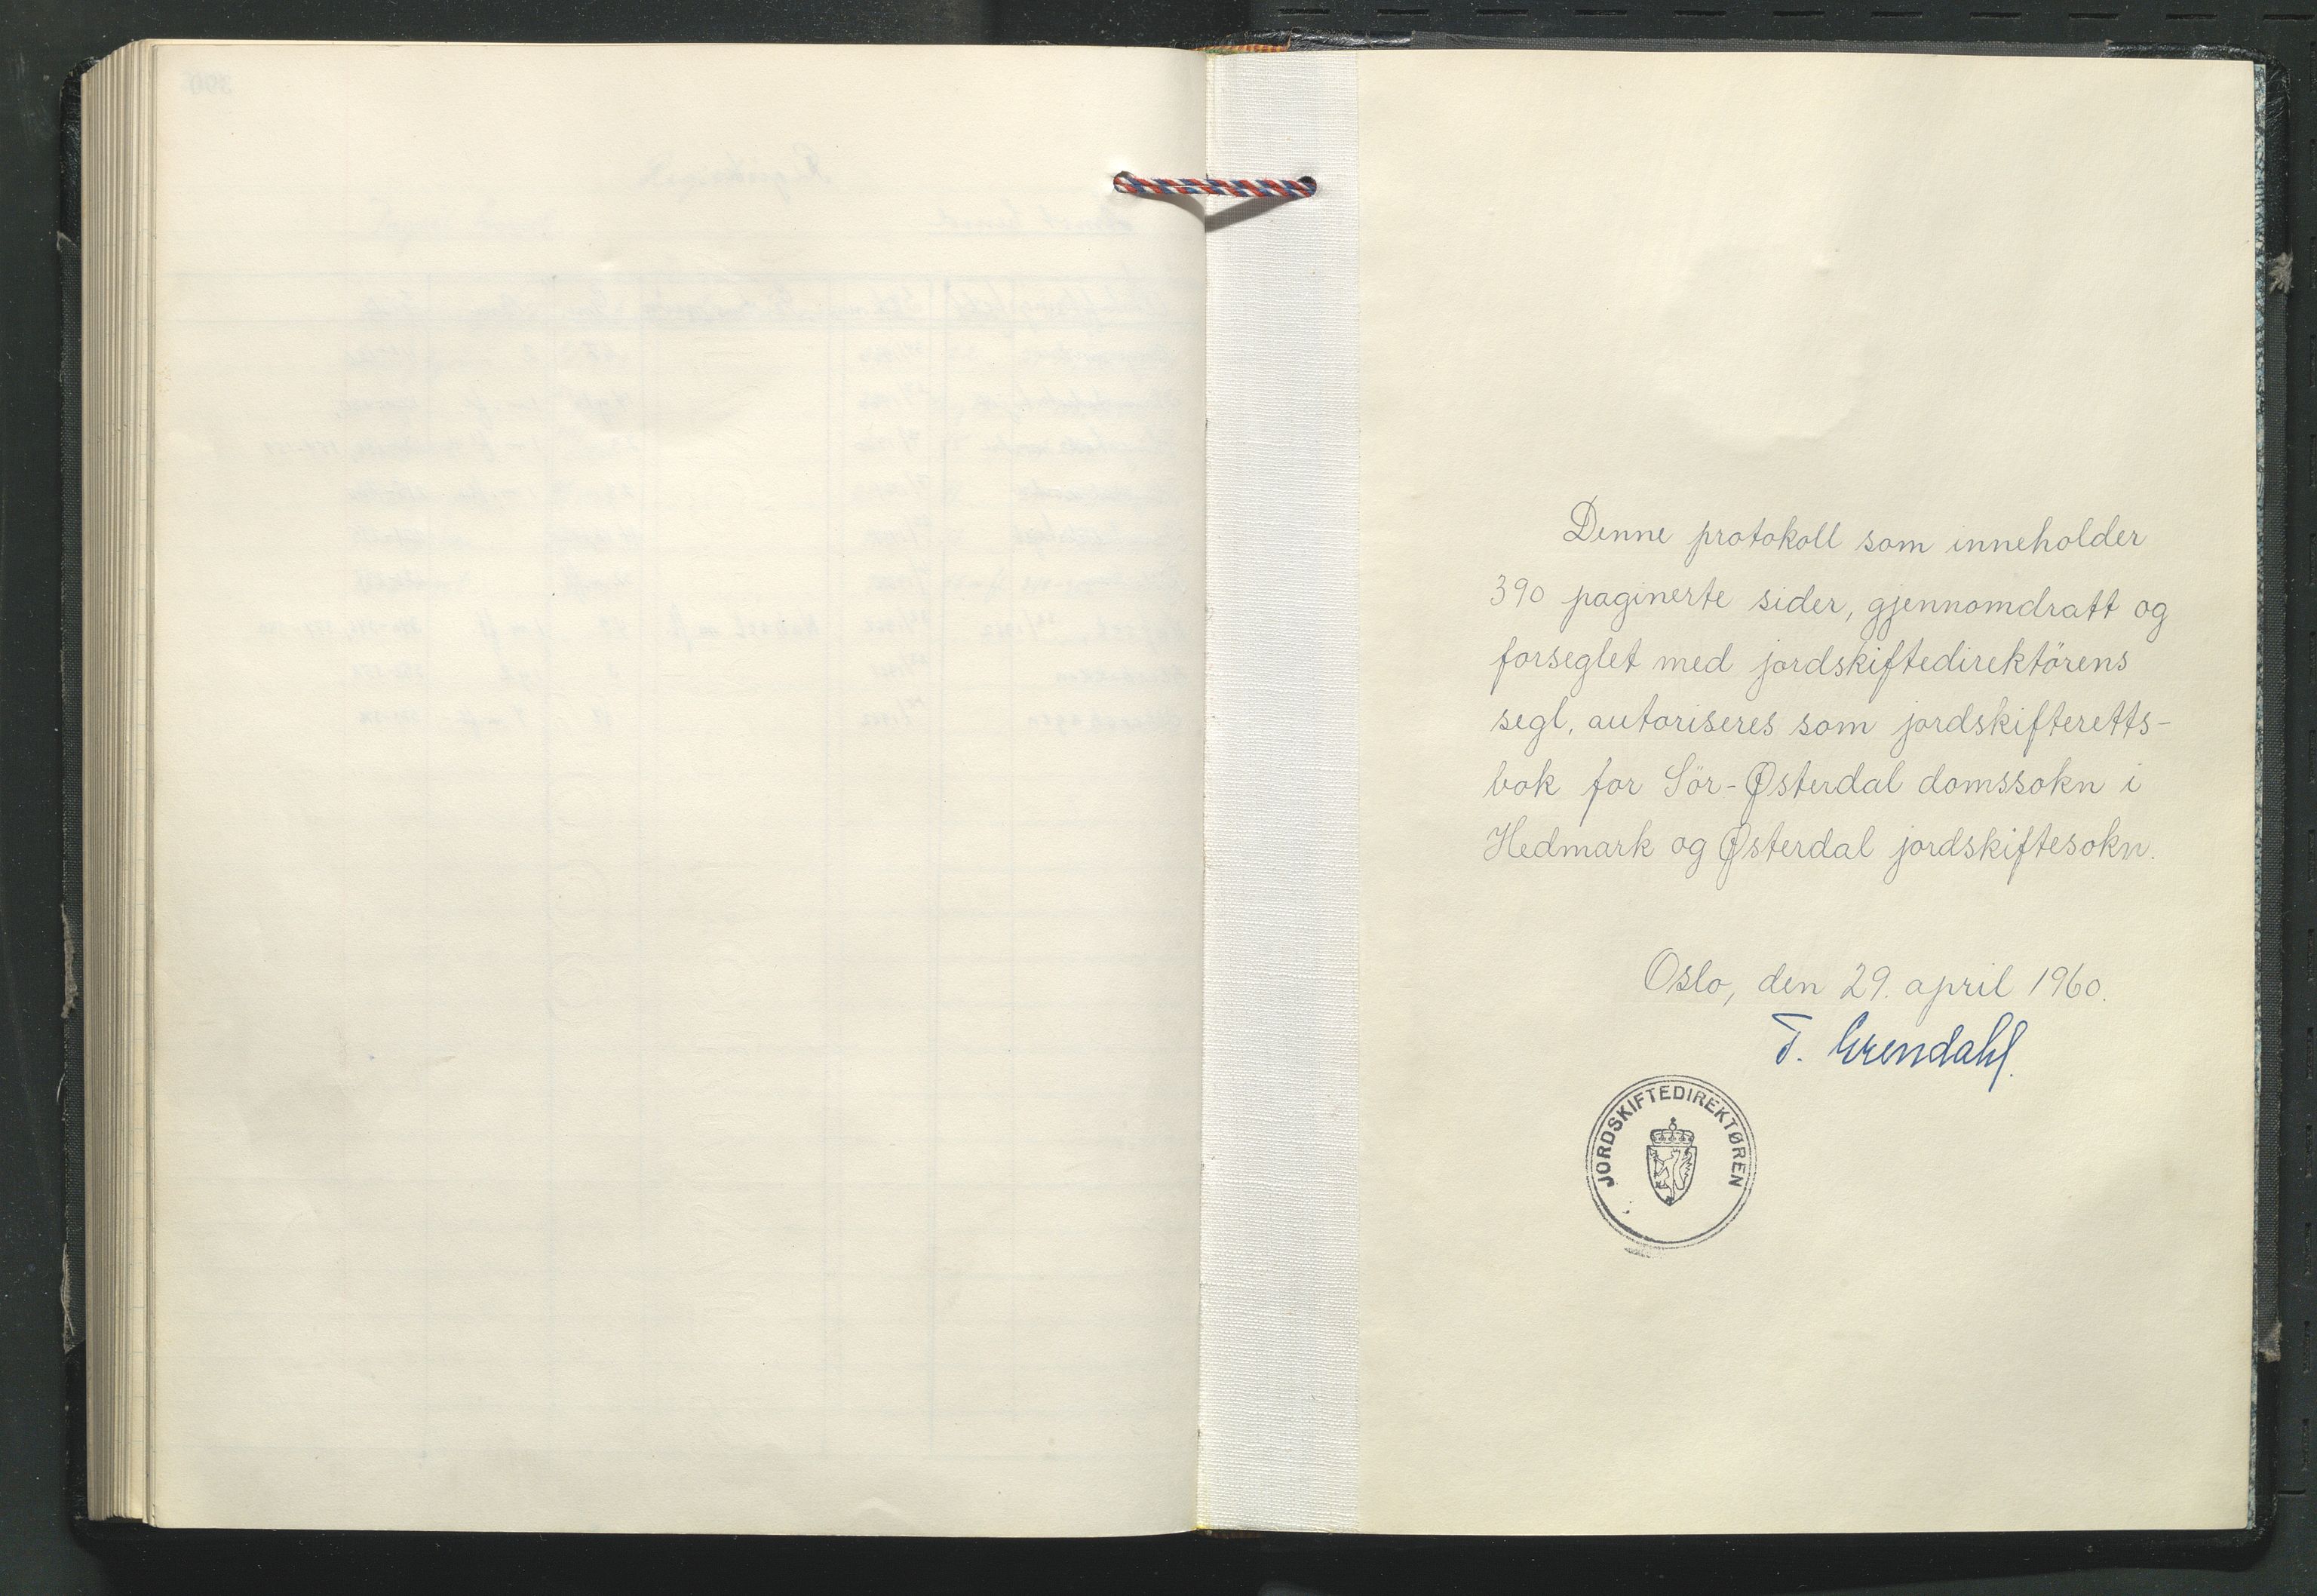 Denne protokoll som inneholder
390 paginerte sider, gjennomdratt og
forseglet med jordskiftedirektörens
segl, autoriseres som jordskifteretts-
bok for Sör-Østerdal domssokn i
Hedmark og Østerdal jordskiftesokn.
Oslo, den 29. april 1960.
T. Grendahl.
JORDSKIFTEDIREKTØREN